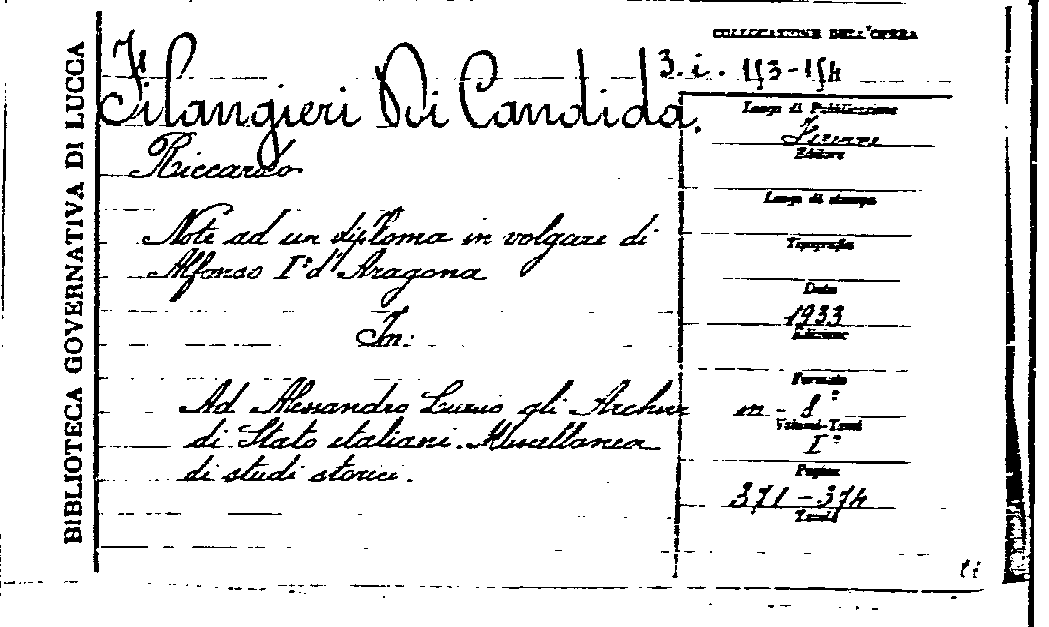 BIBLIOTECA GOVERNATIVA DI LUCCA
Filangieri Di Candida.
Riccardo
Note ad un diploma in volgare di
Alfonso I° d'Aragona
In:
Ad Alessandro Luzio gli Archivi
di Stato italiani. Miscellanea
di studi storici.
COLLOCAZIONE DELL'OPERA
3. i. 153-154
Luogo di Pubblicazione
Firenze
Editore
Luogo di stampa
Tipografia
Data
1933
Edizione
Formato
in - 8°
Volumi-Tomi
I°
Pagine
371-374
Tavole